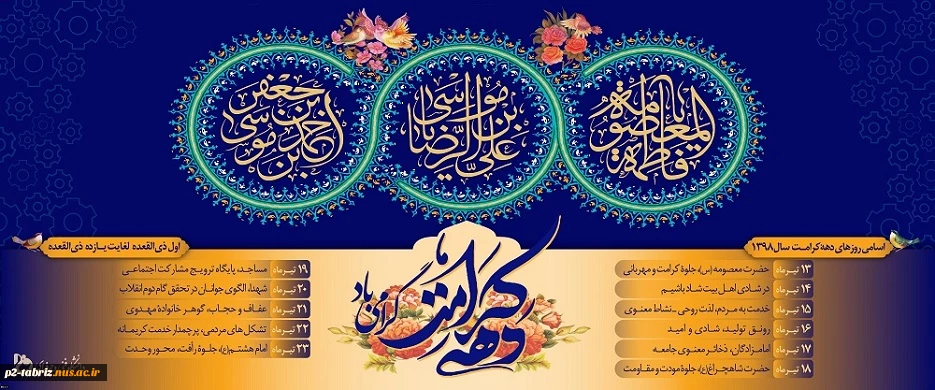 یا فاطمة المعصومة
یا علی بن موسی الرضا
احمد بن موسی بن جعفر
دهه کرامت گرامی باد
اسامی روزهای دههٔ کرامت سال ۱۳۹۸
۱۳ تیرماه حضرت معصومه (س)، جلوهٔ کرامت و مهربانی
۱۴ تیرماه در شادی اهل بیت شاد باشیم
۱۵ تیرماه خدمت به مردم، لذت روحی - نشاط معنوی
۱۶ تیرماه رونق تولید، شادی و امید
۱۷ تیرماه امامزادگان، ذخائر معنوی جامعه
۱۸ تیرماه حضرت شاهچراغ (ع)، جلوهٔ مودت و مقاومت
اول ذی‌القعده لغایت یازده ذی‌القعده
۱۹ تیرماه مساجد، پایگاه ترویج مشارکت اجتماعی
۲۰ تیرماه شهدا، الگوی جوانان در تحقق گام دوم انقلاب
۲۱ تیرماه عفاف و حجاب، گوهر خانوادهٔ مهدوی
۲۲ تیرماه تشکل های مردمی، پرچمدار خدمت کریمانه
۲۳ تیرماه امام هشتم (ع)، جلوهٔ رأفت، محور وحدت
p2-tabriz.nus.ac.ir